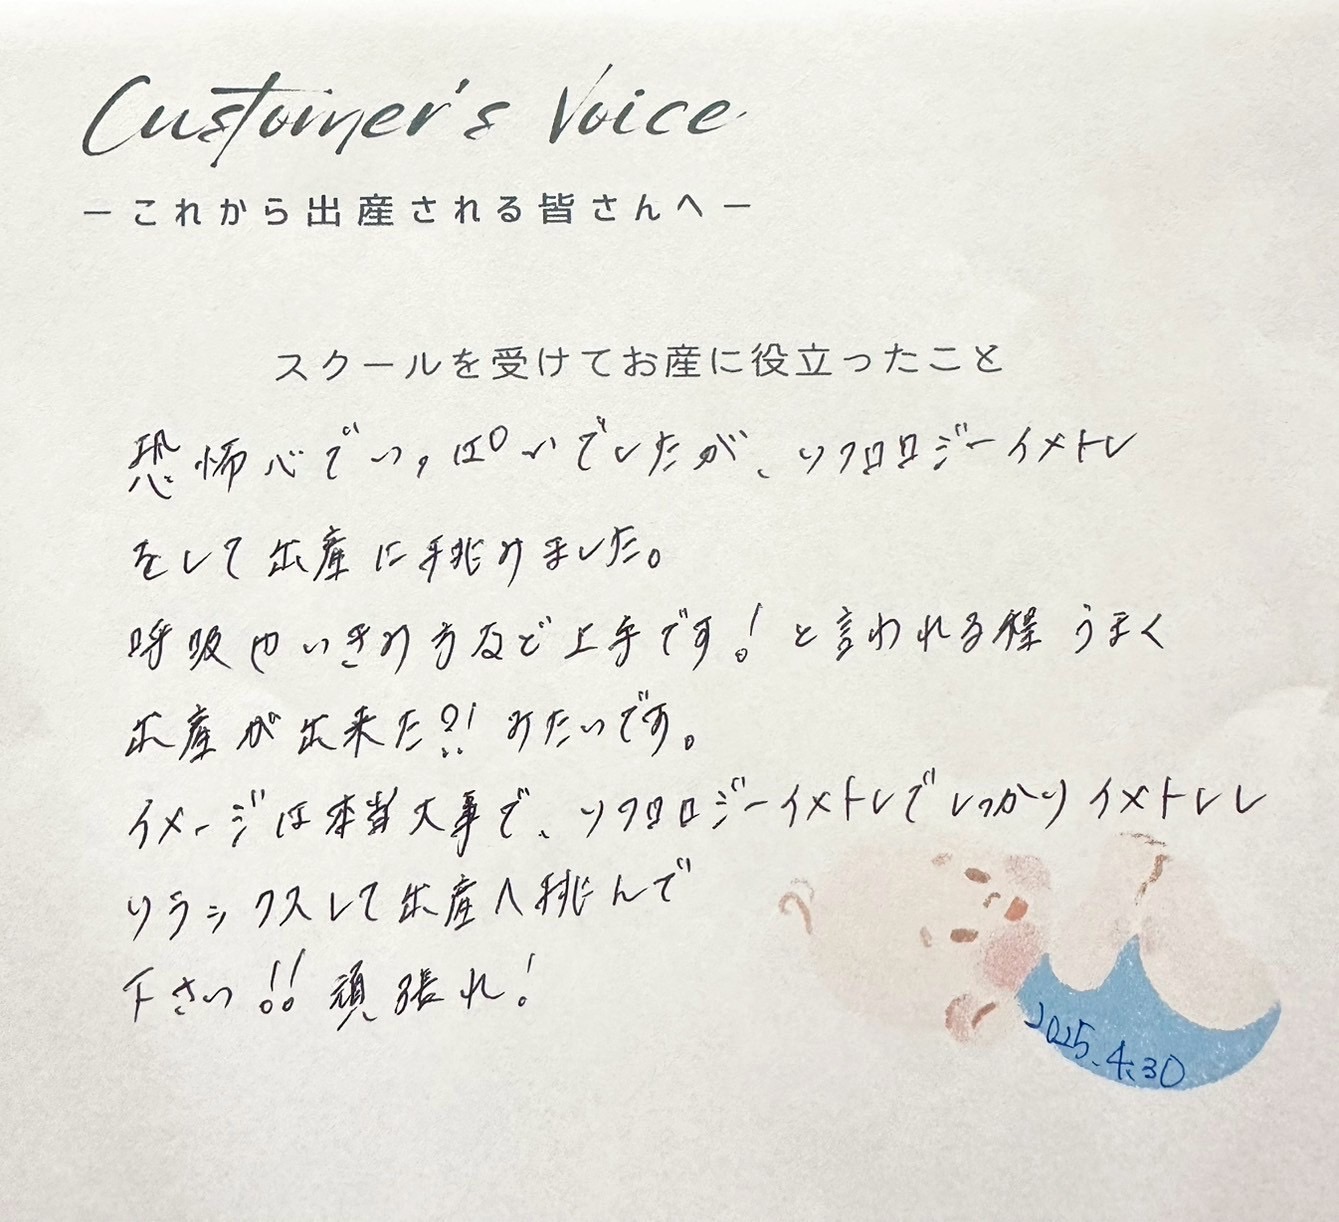 Customer's Voice
ーこれから出産される皆さんへー
スクールを受けてお産に役立ったこと
恐怖心でいっぱいでしたが、ソフロロジーイメトレ
をして出産に挑みました。
呼吸やいきみ方など上手です!と言われる程うまく
出産が出来た?!みたいです。
イメージは本当大事で、ソフロロジーイメトレでしっかりイメトレし
リラックスして出産へ挑んで
下さい!!頑張れ!
2025.4.30